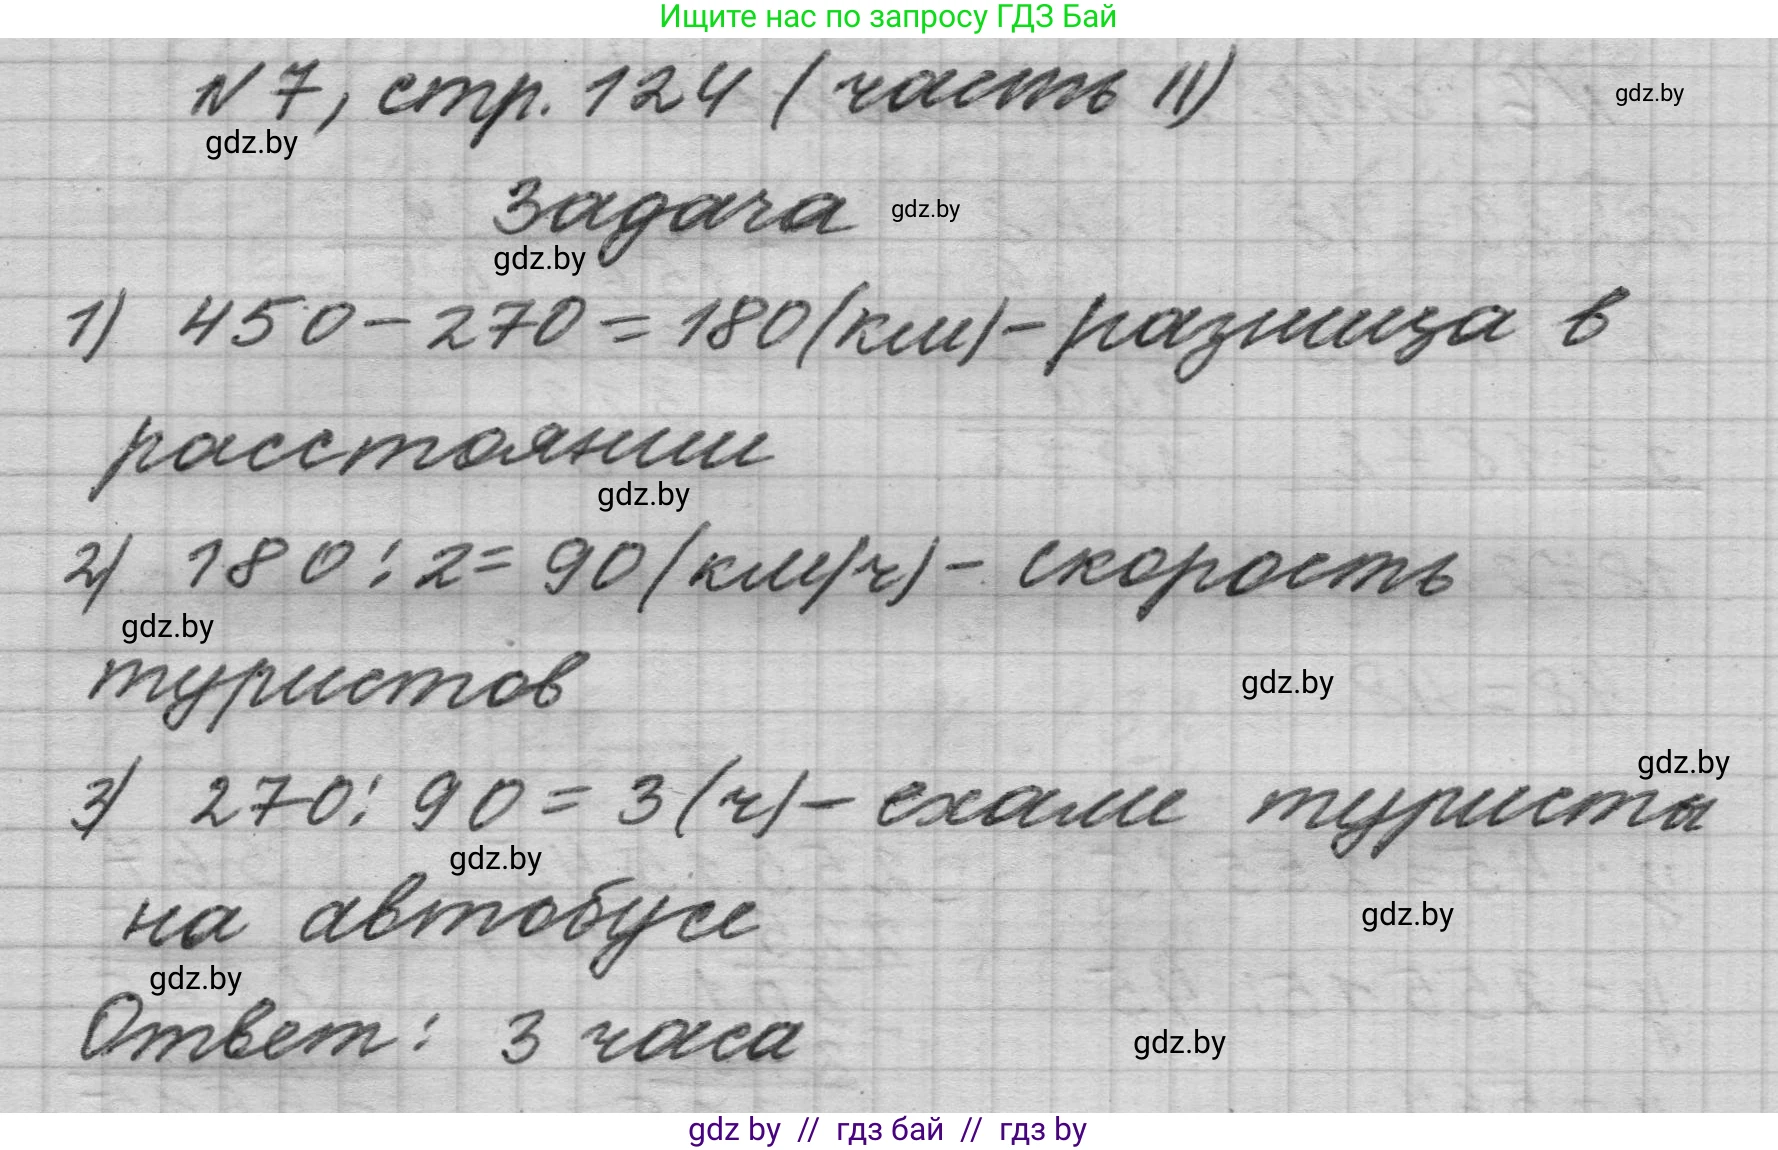 Ищите нас по запросу ГДЗ Бай
N 7, стр. 124 (часть II)
gdz.by
gdz.by
Задача
gdz.by
gdz.by
1) 450 - 270 = 180 (км) - разница в
расстоянии
gdz.by
2) 180 : 2 = 90 (км/ч) - скорость
gdz.by
туристов
gdz.by
gdz.by
3) 270 : 90 = 3 (ч) - ехали туристы
gdz.by
на автобусе
gdz.by
gdz.by
Ответ: 3 часа
gdz.by
gdz by // гдз бай // гдз by